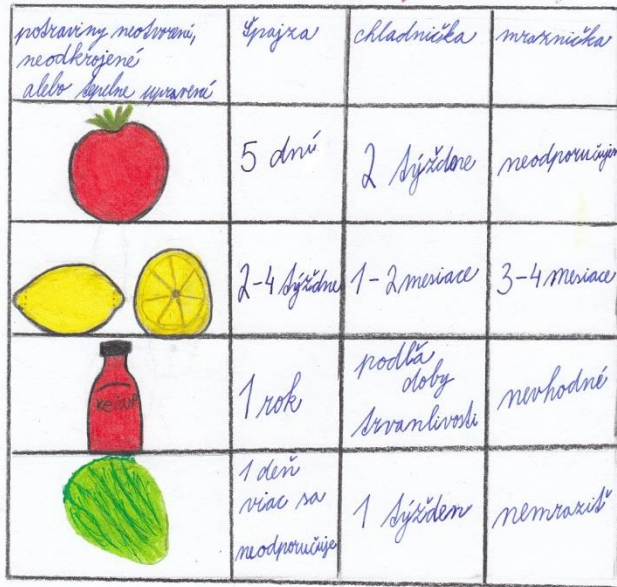 potraviny neotvorené,
neodkrojené
alebo tepelne upravené
Špajza
chladnička
mraznička
5 dní
2 týždne
neodporúčajem
2-4 týždne
1-2 mesiace
3-4 mesiace
KEČUP
1 rok
podľa
doby
trvanlivosti
nevhodné
1 deň
viac sa
neodporúčuje
1 týžden
nemraziť